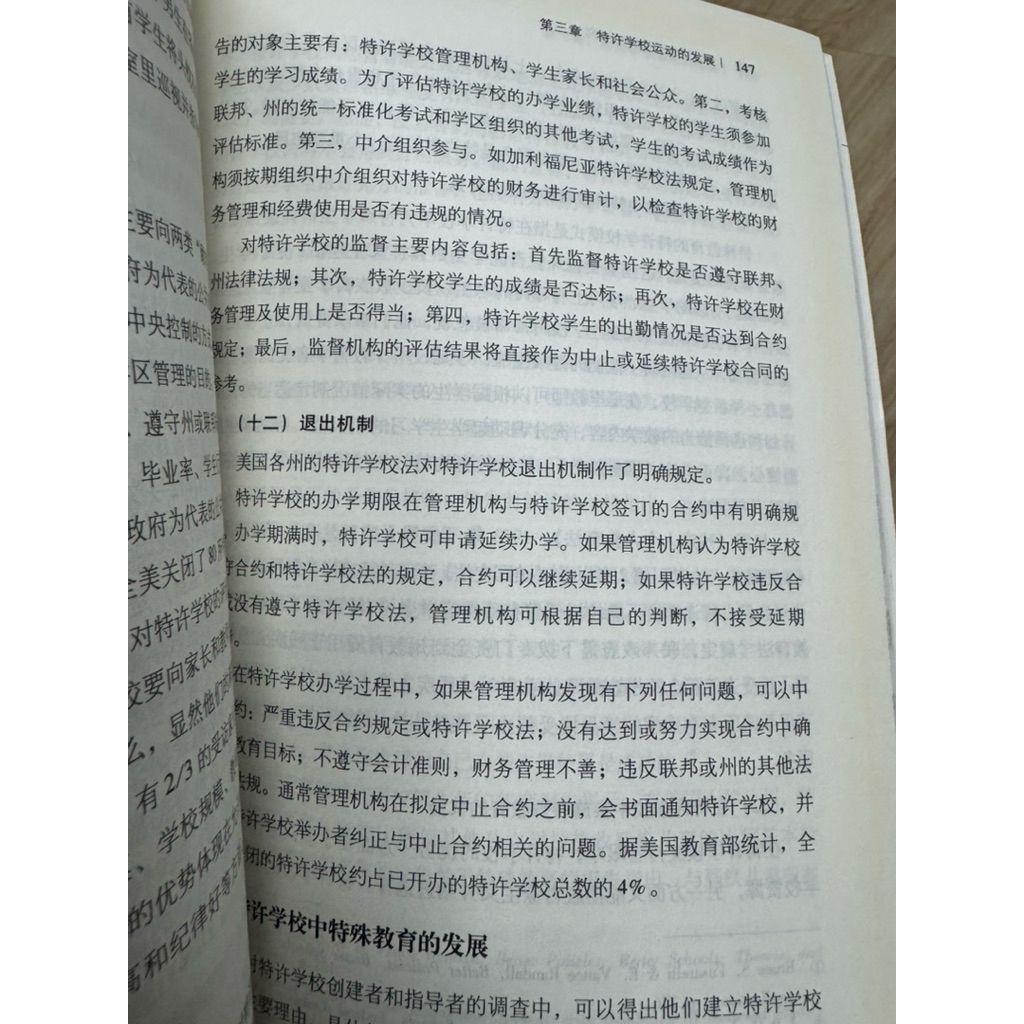 学生将
室里巡视
主要向两类
府为代表的公
中央控制的方
区管理的目
、遵守州或联
毕业率、学生
政府为代表的公
全美关闭了80所
对特许学校的
校要向家长和
么，显然他们
有2/3的受
、学校规模、
的优势体现在
高和纪律好等方
第三章 特许学校运动的发展 | 147
告的对象主要有：特许学校管理机构、学生家长和社会公众。第二，考核
学生的学习成绩。为了评估特许学校的办学业绩，特许学校的学生须参加
联邦、州的统一标准化考试和学区组织的其他考试，学生的考试成绩作为
评估标准。第三，中介组织参与。如加利福尼亚特许学校法规定，管理机
构须按期组织中介组织对特许学校的财务进行审计，以检查特许学校的财
务管理和经费使用是否有违规的情况。
对特许学校的监督主要内容包括：首先监督特许学校是否遵守联邦、
州法律法规；其次，特许学校学生的成绩是否达标；再次，特许学校在财
务管理及使用上是否得当；第四，特许学校学生的出勤情况是否达到合约
规定；最后，监督机构的评估结果将直接作为中止或延续特许学校合同的
参考。
（十二）退出机制
美国各州的特许学校法对特许学校退出机制作了明确规定。
特许学校的办学期限在管理机构与特许学校签订的合约中有明确规
办学期满时，特许学校可申请延续办学。如果管理机构认为特许学校
合约和特许学校法的规定，合约可以继续延期；如果特许学校违反合
没有遵守特许学校法，管理机构可根据自己的判断，不接受延期
。
在特许学校办学过程中，如果管理机构发现有下列任何问题，可以中
约：严重违反合约规定或特许学校法；没有达到或努力实现合约中确
教育目标；不遵守会计准则，财务管理不善；违反联邦或州的其他法
法规。通常管理机构在拟定中止合约之前，会书面通知特许学校，并
许学校举办者纠正与中止合约相关的问题。据美国教育部统计，全
闭的特许学校约占已开办的特许学校总数的4%。
特许学校中特殊教育的发展
对特许学校创建者和指导者的调查中，可以得出他们建立特许学校
主要理由